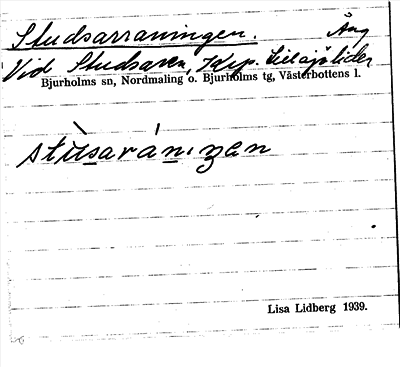 Studsarraningen. Äng
Vid Studsaren, Kup. Lillsjölider
Bjurholms sn, Nordmaling o. Bjurholms tg, Västerbottens l.
stùsarán·ingen
Lisa Lidberg 1939.